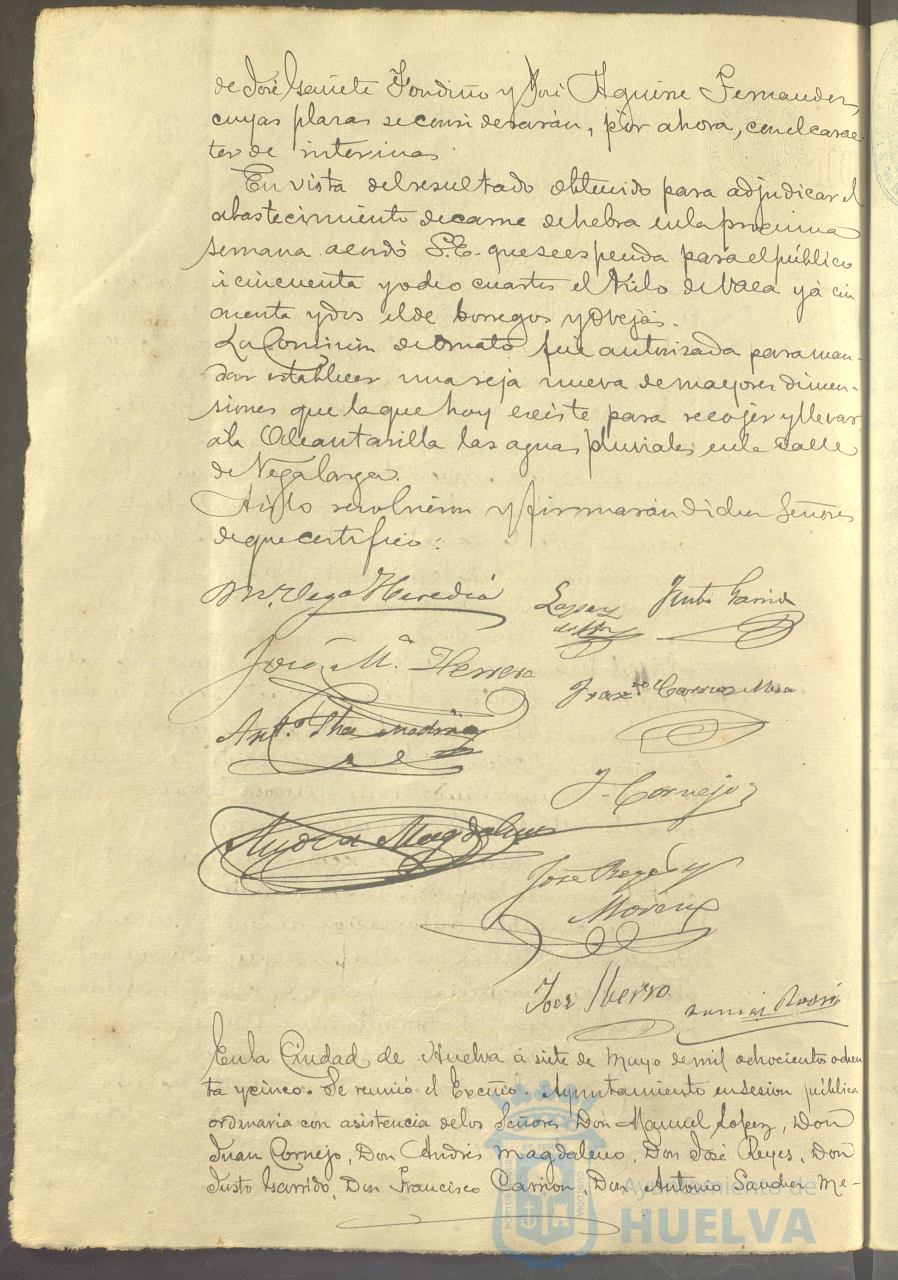 de José Gañete Fondiño y José Aguirre Fernandez,
cuyas plazas se considerarán, por ahora, con el carac
ter de interinas.
En vista del resultado obtenido para adjudicar el
abastecimiento de carne de hebra en la procsima
semana acordó S.E. que se espenda para el público
á cincuenta y ocho cuartos el Kilo de Vaca y á cin
cuenta y dos el de borregos y Ovejas.
La Comision de Ornato fue autorizada para man-
dar establecer una reja nueva de mayores dimen-
siones que la que hoy existe para recojer y llevar
á la Alcantarilla las aguas pluviales en la calle
de Vega larga.
Así lo resolvieron y firmarán dichos Señores
de que certifico:
M. Vega Heredia Lopez Justo Garrido
José Mª Herrera
Franco Carrion
Anto. Shez Medina
J. Cornejo
Andres Magdaleno
José Reyes y
Moreno
José Ybarro
En la Ciudad de Huelva á siete de Mayo de mil ochociento ochen
ta y cinco. Se reunió el Excmo. Ayuntamiento en sesion pública
ordinaria con asistencia de los Señores Don Manuel Lopez, Don
Juan Cornejo, Don Andrés Magdaleno, Don José Reyes, Don
Justo Garrido, Don Francisco Carrion, Don Antonio Sanchez Me-
Ayuntamiento de
HUELVA